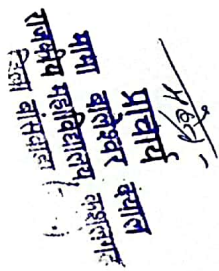 प्राचार्य
मामा बालेश्वर दयाल
राजकीय महाविद्यालय कुशलगढ़
जिला बांसवाड़ा